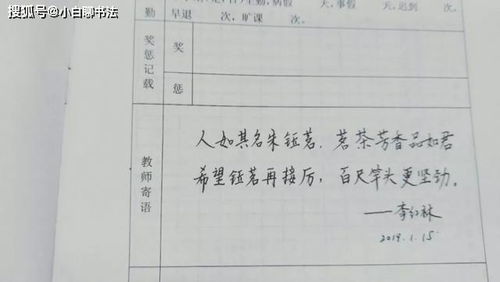 搜狐号@小白聊书法
勤
早退 次，旷课 次。
奖惩记载
奖
惩
教师寄语
人如其名朱钰茗，茗茶芳香品如君
希望钰茗再接厉，百尺竿头更坚劲。
——李红林
2019.1.15